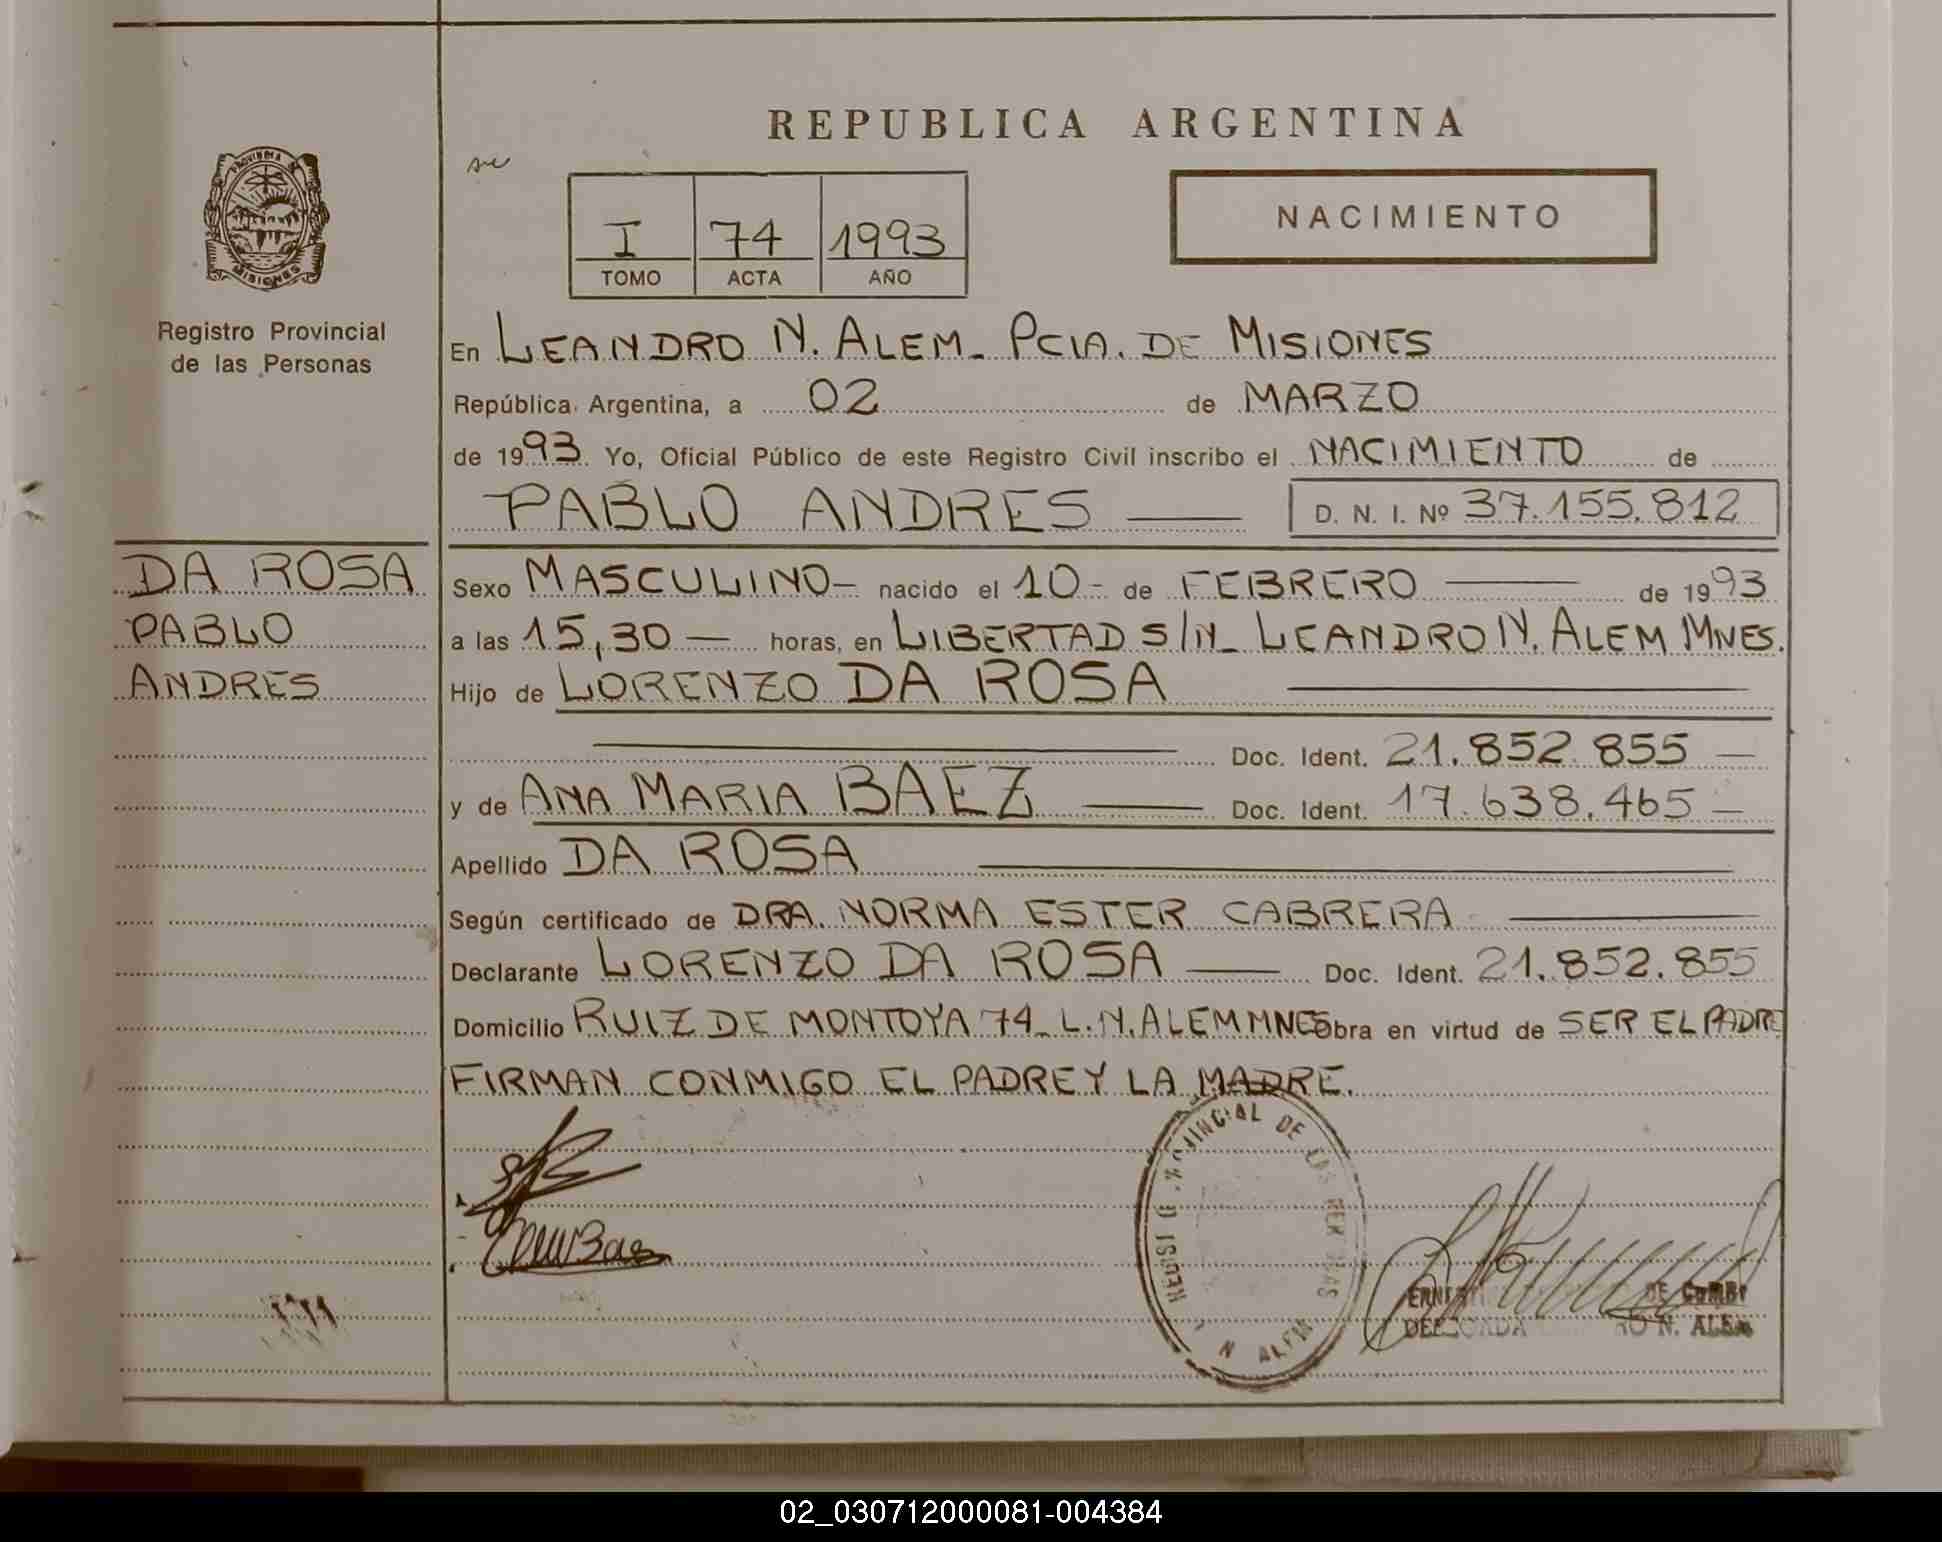 REPUBLICA ARGENTINA
PROVINCIA DE
MISIONES
Registro Provincial
de las Personas
I 74 1993
TOMO ACTA AÑO
NACIMIENTO
En LEANDRO N. ALEM_ PCIA. DE MISIONES
República Argentina, a 02 de MARZO
de 1993 Yo, Oficial Público de este Registro Civil inscribo el NACIMIENTO de
PABLO ANDRES — D. N. I. Nº 37.155.812
DA ROSA
PABLO
ANDRES
Sexo MASCULINO— nacido el 10- de FEBRERO — de 1993
a las 15,30 — horas, en LIBERTAD S/N_ LEANDRO N. ALEM MNES.
Hijo de LORENZO DA ROSA —
— Doc. Ident. 21.852.855 —
y de ANA MARIA BAEZ — Doc. Ident. 17.638.465 —
Apellido DA ROSA —
Según certificado de DRA. NORMA ESTER CABRERA —
Declarante LORENZO DA ROSA — Doc. Ident. 21.852.855
Domicilio RUIZ DE MONTOYA 74_ L.N. ALEM MNES Obra en virtud de SER EL PADRE
FIRMAN CONMIGO EL PADRE Y LA MADRE.
PROVINCIAL DE LAS
N ALEM
DE
N. ALEM
02_030712000081-004384